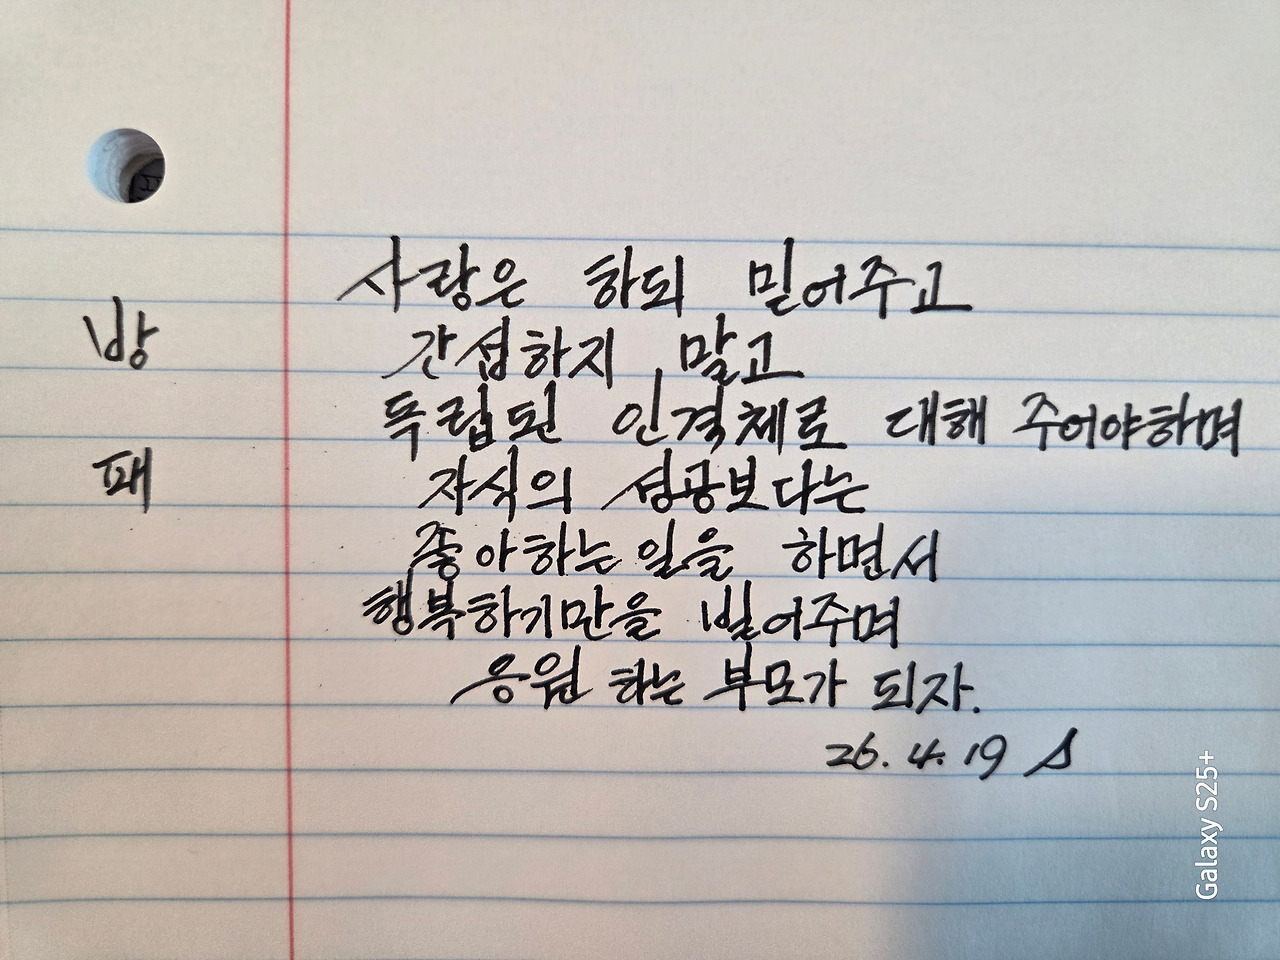 방
패
사랑은 하되 믿어주고
간섭하지 말고
독립된 인격체로 대해 주어야하며
자식의 성공보다는
좋아하는 일을 하면서
행복하기만을 빌어주며
응원 하는 부모가 되자.
26. 4. 19 S
Galaxy S25+